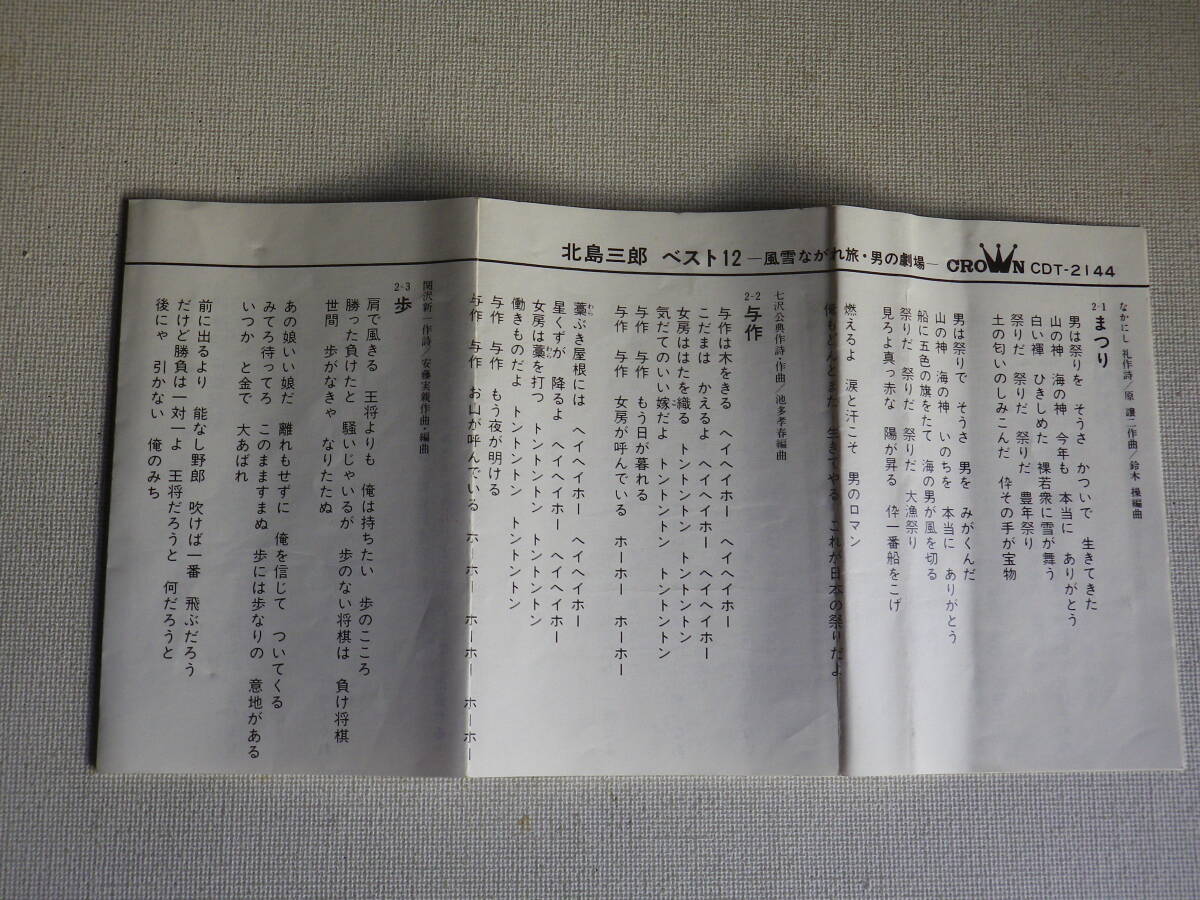 北島三郎 ベスト12 —風雪ながれ旅・男の劇場— CROWN CDT-2144
2-1 まつり
なかにし 礼作詩／原 譲二作曲／鈴木 操編曲
男は祭りを そうさ かついで 生きてきた
山の神 海の神 今年も 本当に ありがとう
白い褌 ひきしめた 裸若衆に雪が舞う
祭りだ 祭りだ 祭りだ 豊年祭り
土の匂いのしみこんだ 伜その手が宝物
男は祭りで そうさ 男を みがくんだ
山の神 海の神 いのちを 本当に ありがとう
船に五色の旗をたて 海の男が風を切る
祭りだ 祭りだ 祭りだ 大漁祭り
見ろよ真っ赤な 陽が昇る 伜一番船をこげ
燃えるよ 涙と汗こそ 男のロマン
俺もどんとまた 生きてやる これが日本の祭りだよ
2-2 与作
七沢公典作詩・作曲／池多孝春編曲
与作は木をきる ヘイヘイホー ヘイヘイホー
こだまは かえるよ ヘイヘイホー ヘイヘイホー
女房ははたを織る トントントン トントントン
気だてのいい嫁だよ トントントン トントントン
与作 与作 もう日が暮れる
与作 与作 女房が呼んでいる ホーホー ホーホー
藁ぶき屋根には ヘイヘイホー ヘイヘイホー
星くずが 降るよ ヘイヘイホー ヘイヘイホー
女房は藁を打つ トントントン トントントン
働きものだよ トントントン トントントン
与作 与作 もう夜が明ける
与作 与作 お山が呼んでいる ホーホー ホーホー ホーホー
2-3 歩
関沢新一作詩／安藤実親作曲・編曲
肩で風きる 王将よりも 俺は持ちたい 歩のこころ
勝った負けたと 騒いじゃいるが 歩のない将棋は 負け将棋
世間 歩がなきゃ なりたたぬ
あの娘いい娘だ 離れもせずに 俺を信じて ついてくる
みてろ待ってろ このまますまぬ 歩には歩なりの 意地がある
いつか と金で 大あばれ
前に出るより 能なし野郎 吹けば一番 飛ぶだろう
だけど勝負は一対一よ 王将だろうと 何だろうと
後にゃ 引かない 俺のみち